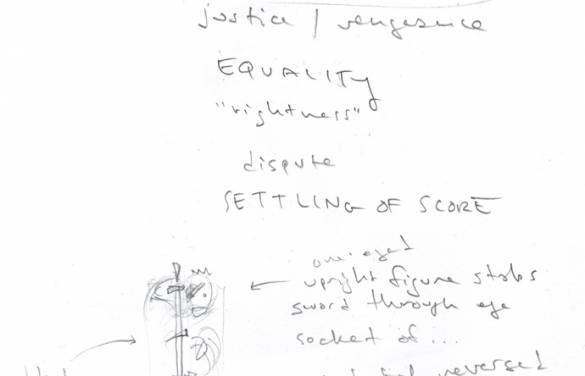 justice / vengeance
EQUALITY
"rightness"
dispute
SETTLING OF SCORE
one-eyed
upright figure stabs
sword through eye
socket of ...
reversed